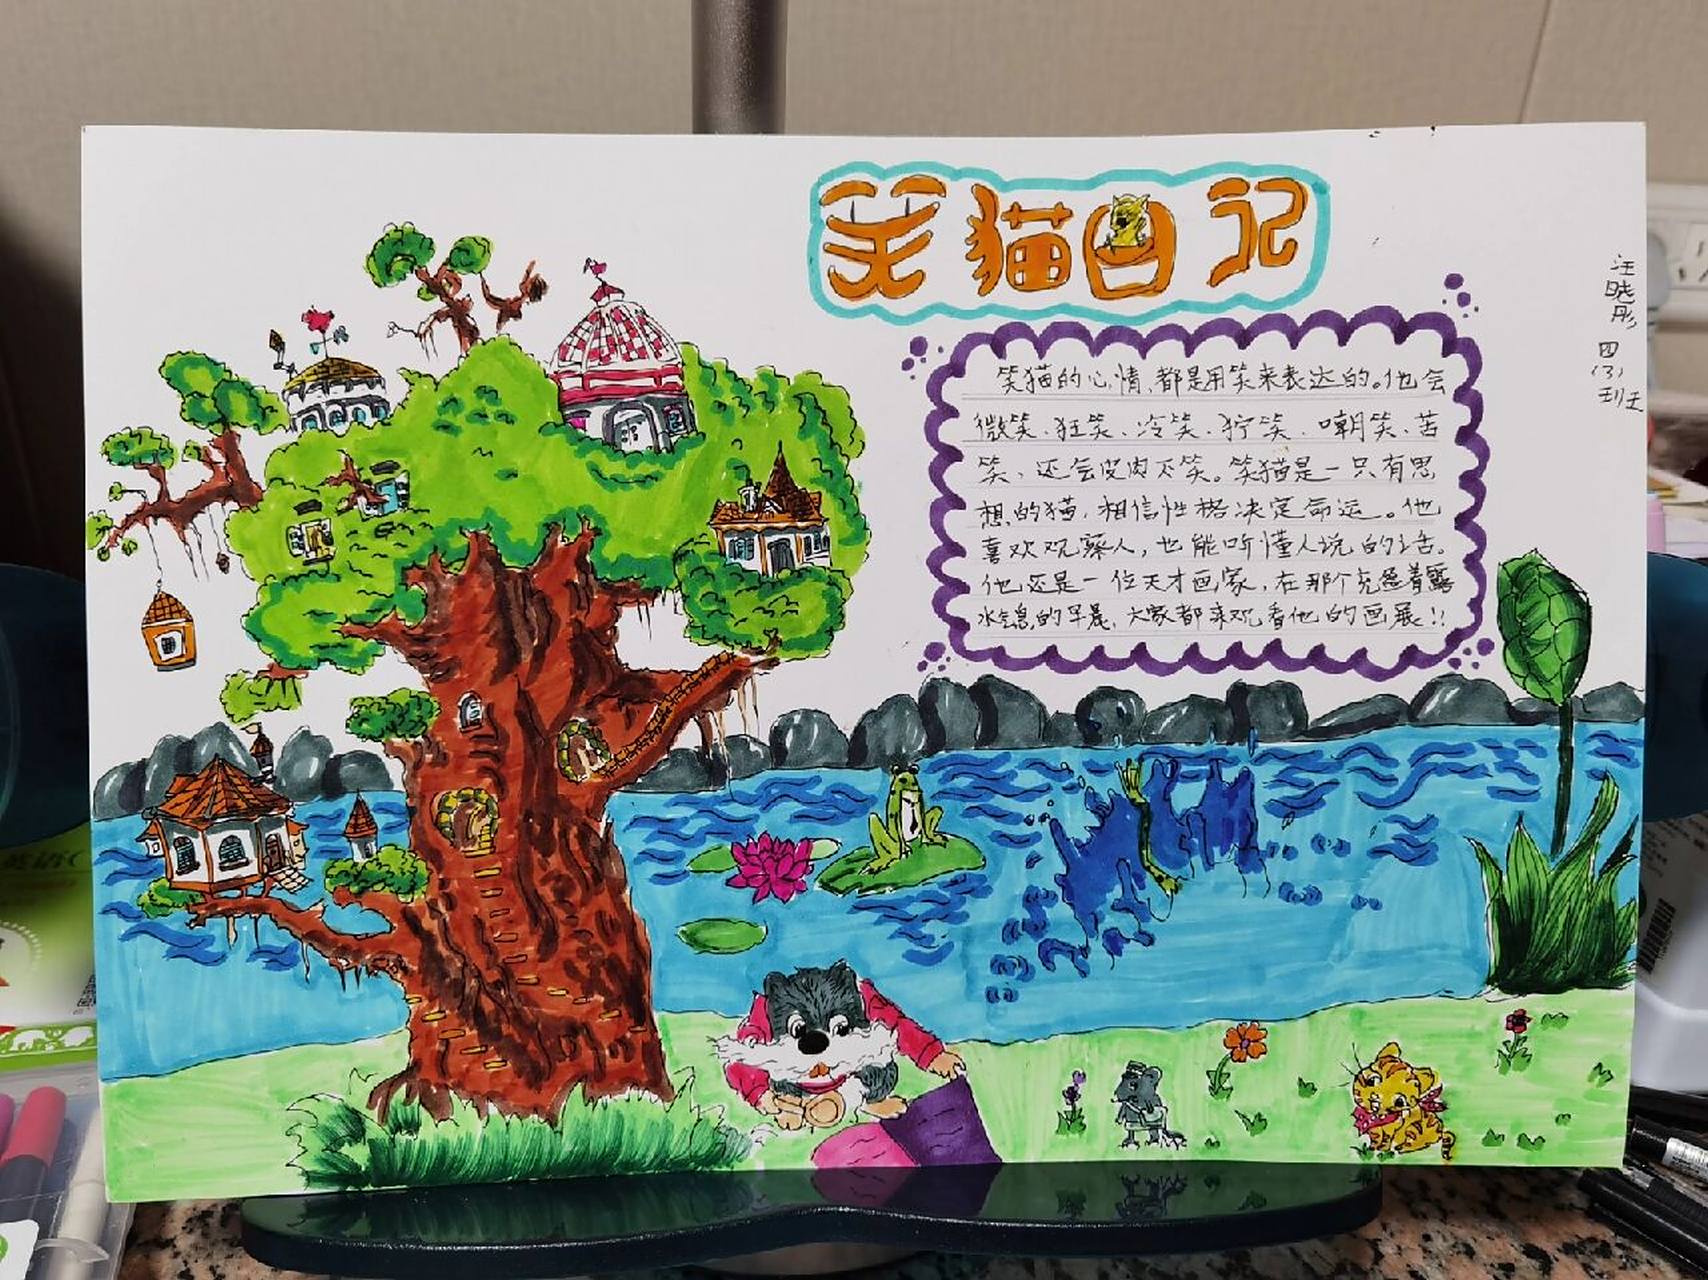 笑猫日记
笑猫的心情,都是用笑来表达的。他会
微笑、狂笑、冷笑、狞笑、嘲笑、苦
笑、还会皮肉不笑。笑猫是一只有思
想的猫,相信性格决定命运。他
喜欢观察人,也能听懂人说的话。
他还是一位天才画家,在那个充满着露
水气息的早晨,大家都来观看他的画展!!
汪晓彤
四(3)班
英语